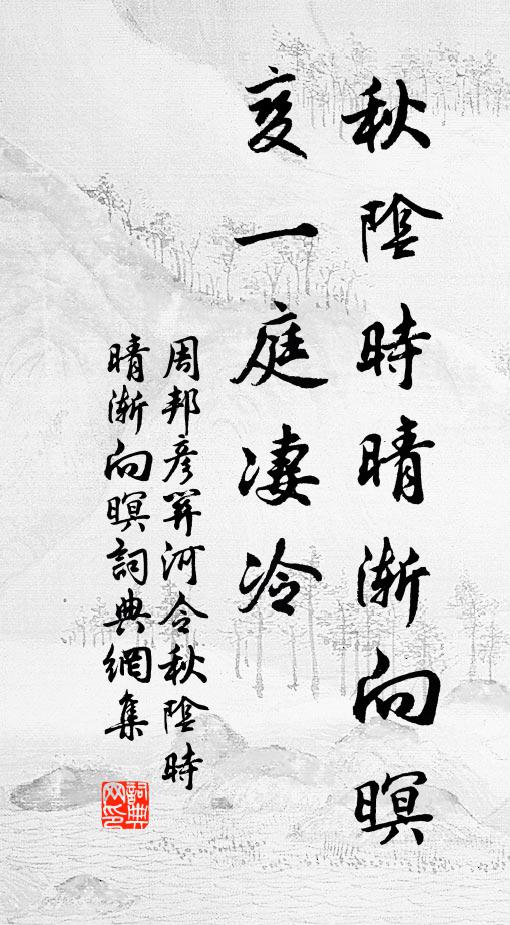 秋陰時晴漸向暝
變一庭凄冷
周邦彥關河令秋陰時
晴漸向暝詞典網集
詞典
网印